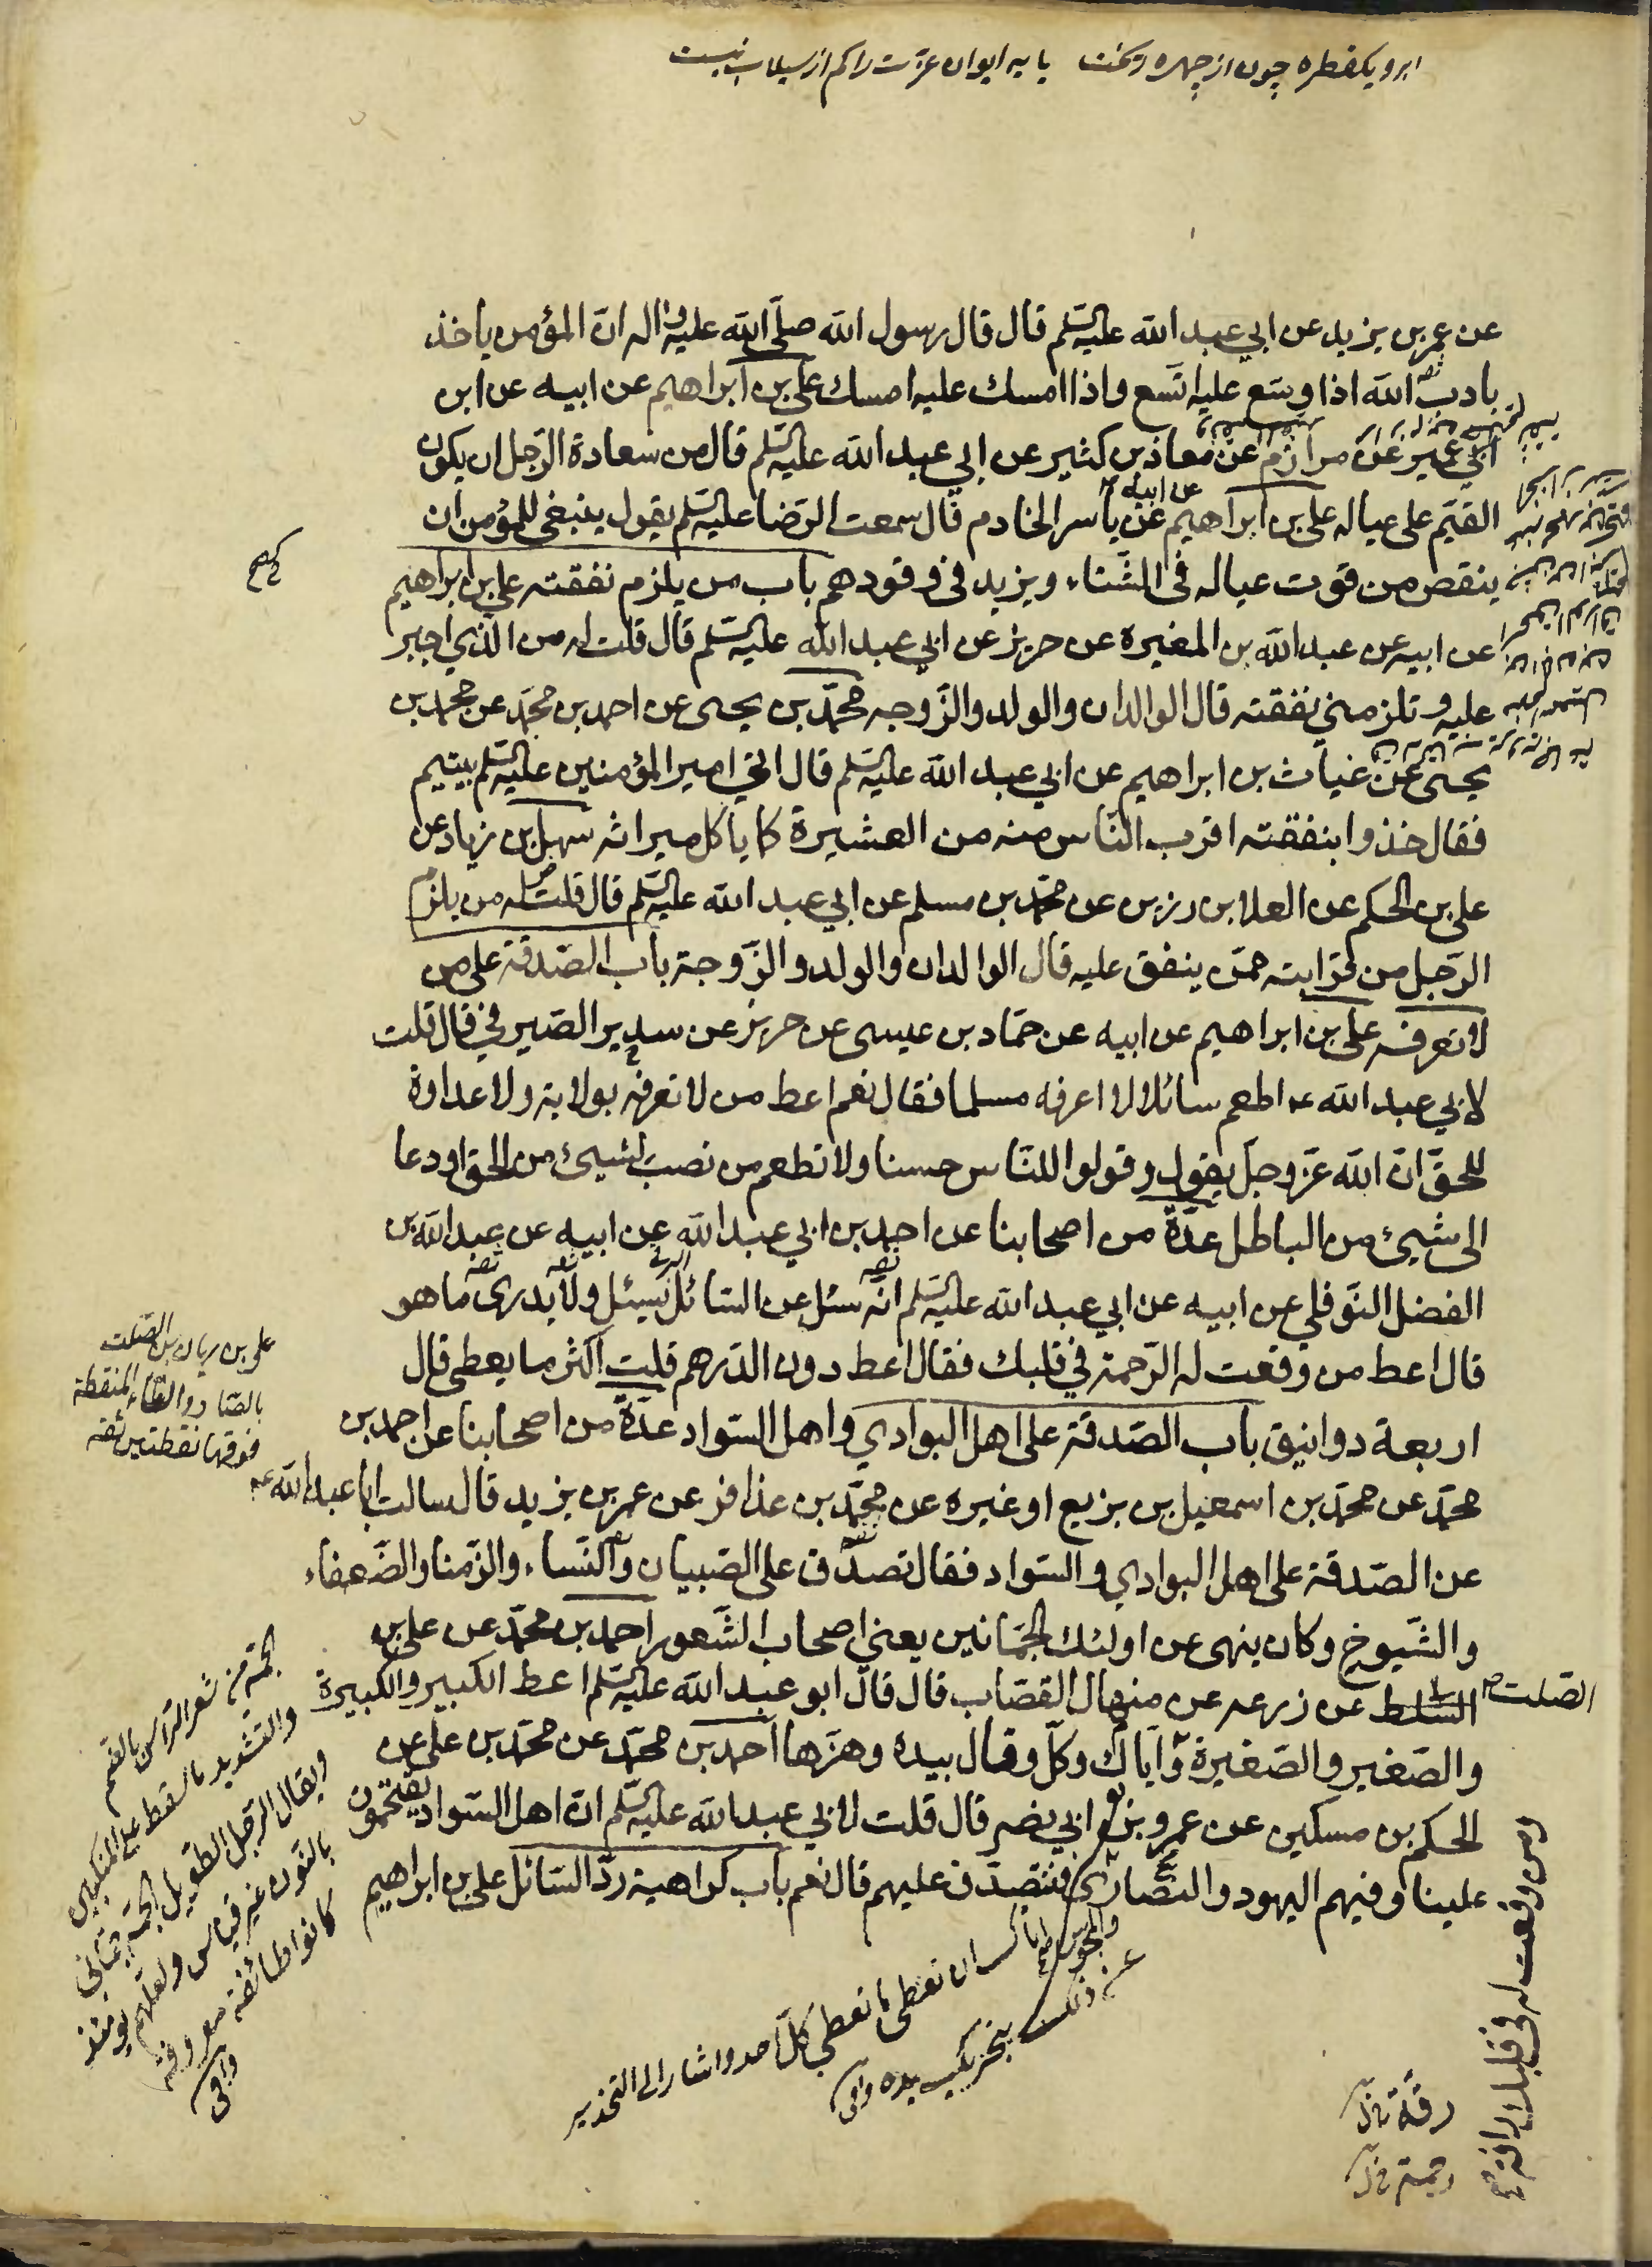 ابرو یکقطره چون از چهره ریخت پایه ایوان عزت را کم از سیلاب نیست
عن عمر بن يزيد عن ابي عبد الله عليه السلم قال قال رسول الله صلى الله عليه واله ان المؤمن ياخذ
بادب الله اذا وسع عليه اتسع واذا امسك عليه امسك على بن ابراهيم عن ابيه عن ابن
ابي عمير عن مرازم عن معاذ بن كثير عن ابي عبد الله عليه السلم قال من سعادة الرجل ان يكون
القيم على عياله على بن ابراهيم عن ابيه عن ياسر الخادم قال سمعت الرضا عليه السلم يقول ينبغي للمؤمن ان
ينقص من قوت عياله في الشتاء ويزيد في وقودهم باب من يلزم نفقته علي بن ابراهيم
عن ابيه عن عبد الله بن المغيرة عن حريز عن ابي عبد الله عليه السلم قال قلت له من الذي اجبر
عليه وتلزمني نفقته قال الوالدان والولد والزوجه محمد بن يحيى عن احمد بن محمد عن محمد بن
يحيى عن غياث بن ابراهيم عن ابي عبد الله عليه السلم قال اتي امير المؤمنين عليه السلم بيتيم
فقال خذوا بنفقته اقرب الناس منه من العشيرة كما ياكل ميراثه سهل بن زياد عن
على بن الحكم عن العلا بن رزين عن محمد بن مسلم عن ابي عبد الله عليه السلم قال قلت له من يلزم
الرجل من قرابته ممن ينفق عليه قال الوالدان والولد والزوجة باب الصدقة على من
لا تعرفه على بن ابراهيم عن ابيه عن حماد بن عيسى عن حريز عن سدير الصيرفي قال قلت
لابي عبد الله ع اطعم سائلا لا اعرفه مسلما فقال نعم اعط من لا تعرفه بولاية ولا عداوة
للحق ان الله عز وجل يقول وقولوا للناس حسنا ولا تطعم من نصب لشيئ من الحق او دعا
الى شيئ من الباطل عدة من اصحابنا عن احمد بن ابي عبد الله عن ابيه عن عبد الله بن
الفضل النوفلي عن ابيه عن ابي عبد الله عليه السلم انه سئل عن السائل يسئل ولا يدرى ما هو
قال اعط من وقعت له الرحمة في قلبك فقال اعط دون الدرهم قلت اكثر ما يعطى قال
اربعة دوانيق باب الصدقة على اهل البوادي واهل السواد عدة من اصحابنا عن احمد بن
محمد عن محمد بن اسمعيل بن بزيع او غيره عن محمد بن عذافر عن عمر بن يزيد قال سالت ابا عبد الله ع
عن الصدقة على اهل البوادي والسواد فقال تصدق على الصبيان والنساء والزمنا والضعفاء
والشيوخ وكان ينهى عن اولئك الجمانين يعني اصحاب الشعور احمد بن محمد عن على بن
السلط عن زرعه عن منهال القصاب قال قال ابو عبد الله عليه السلم اعط الكبير والكبيرة
والصغير والصغيرة واياك وكل وقال بيده وهزها احمد بن محمد عن محمد بن على عن
الحكم بن مسكين عن عمرو بن ابي نصر قال قلت لابي عبد الله عليه السلم ان اهل السواد يقتحمون
علينا وفيهم اليهود والنصارى فنتصدق عليهم قال نعم باب كراهية رد السائل على بن ابراهيم
والمجوس
الصلت
على بن ريان بن الصلت
بالصاد والتاء المنقطة
فوقها نقطتين ثقه
الجمة من شعر الراس بالضم
والتشديد ما سقط على المنكبين
ويقال للرجل الطويل الجمة جماني
بالنون غير قياس ولعلهم يومئذ
كانوا طائفة معروفة
وافى
اياك ان تعطى ما تعطي كل احد واشار الى التحذير
عن ذلك بتحريك يده وافى
ومن وقعت له في قلبك رافة
رقة
رحمة